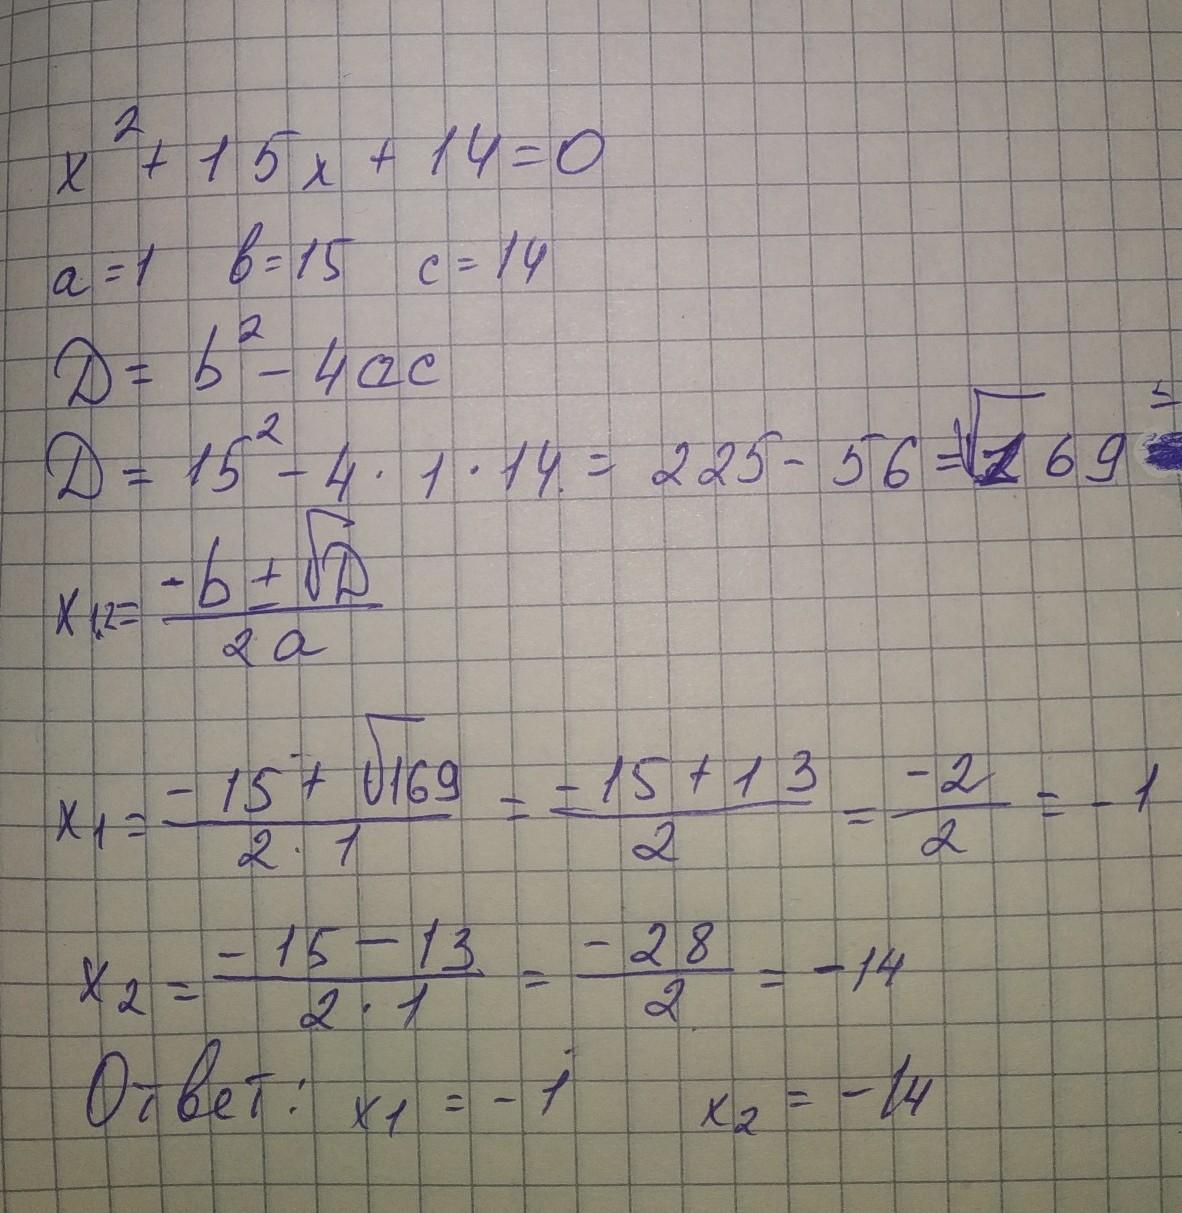 x² + 15x + 14 = 0
a = 1 b = 15 c = 14
D = b² - 4ac
D = 15² - 4 · 1 · 14 = 225 - 56 = √169 =
x1,2 = (-b ± √D) / 2a
x1 = (-15 + √169) / (2 · 1) = (-15 + 13) / 2 = -2 / 2 = -1
x2 = (-15 - 13) / (2 · 1) = -28 / 2 = -14
Ответ: x1 = -1 x2 = -14